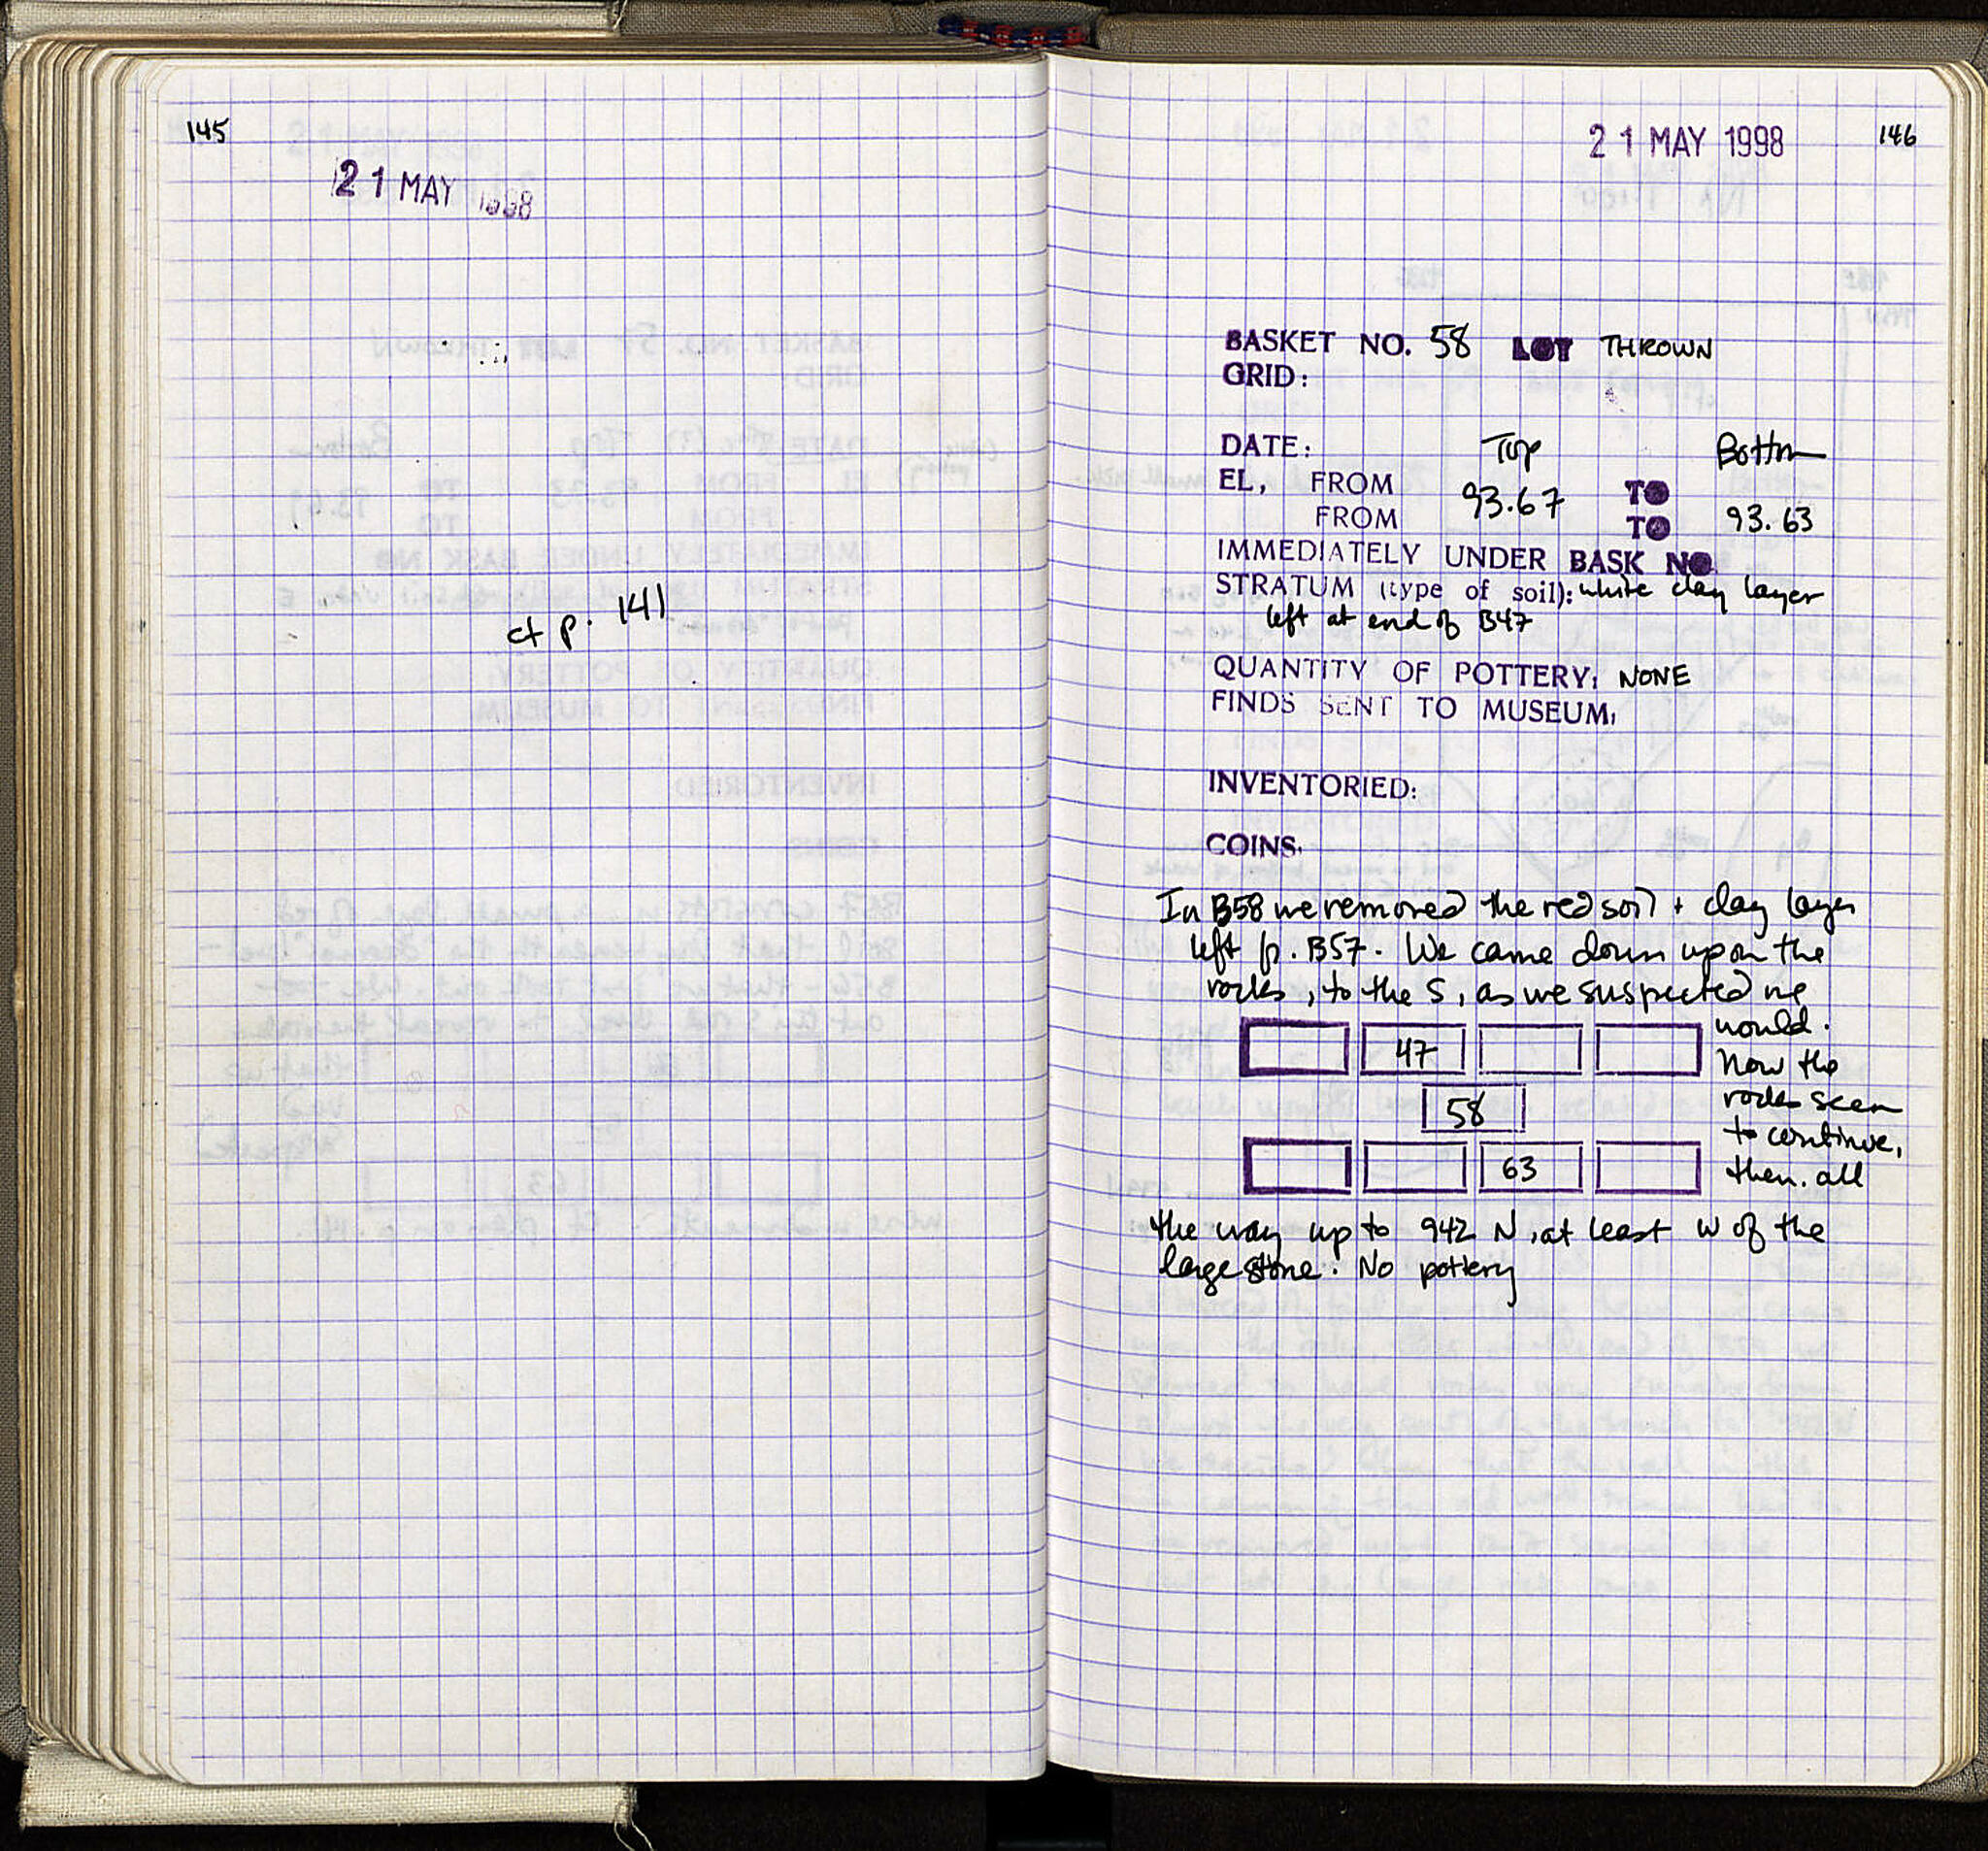 145
21 MAY 1998
cf p. 141
21 MAY 1998
146
BASKET NO. 58 LOT THROWN
GRID:
DATE: Top Bottom
EL, FROM 93.67 TO 93.63
FROM TO
IMMEDIATELY UNDER BASK NO
STRATUM (type of soil): white clay layer
left at end of B47
QUANTITY OF POTTERY: NONE
FINDS SENT TO MUSEUM:
INVENTORIED:
COINS:
In B58 we removed the red soil + clay layer
left fr. B57. We came down upon the
rocks, to the S, as we suspected we
would.
47
Now the
58
rocks seem
to continue,
63
then. all
the way up to 942 N, at least W of the
large stone. No pottery